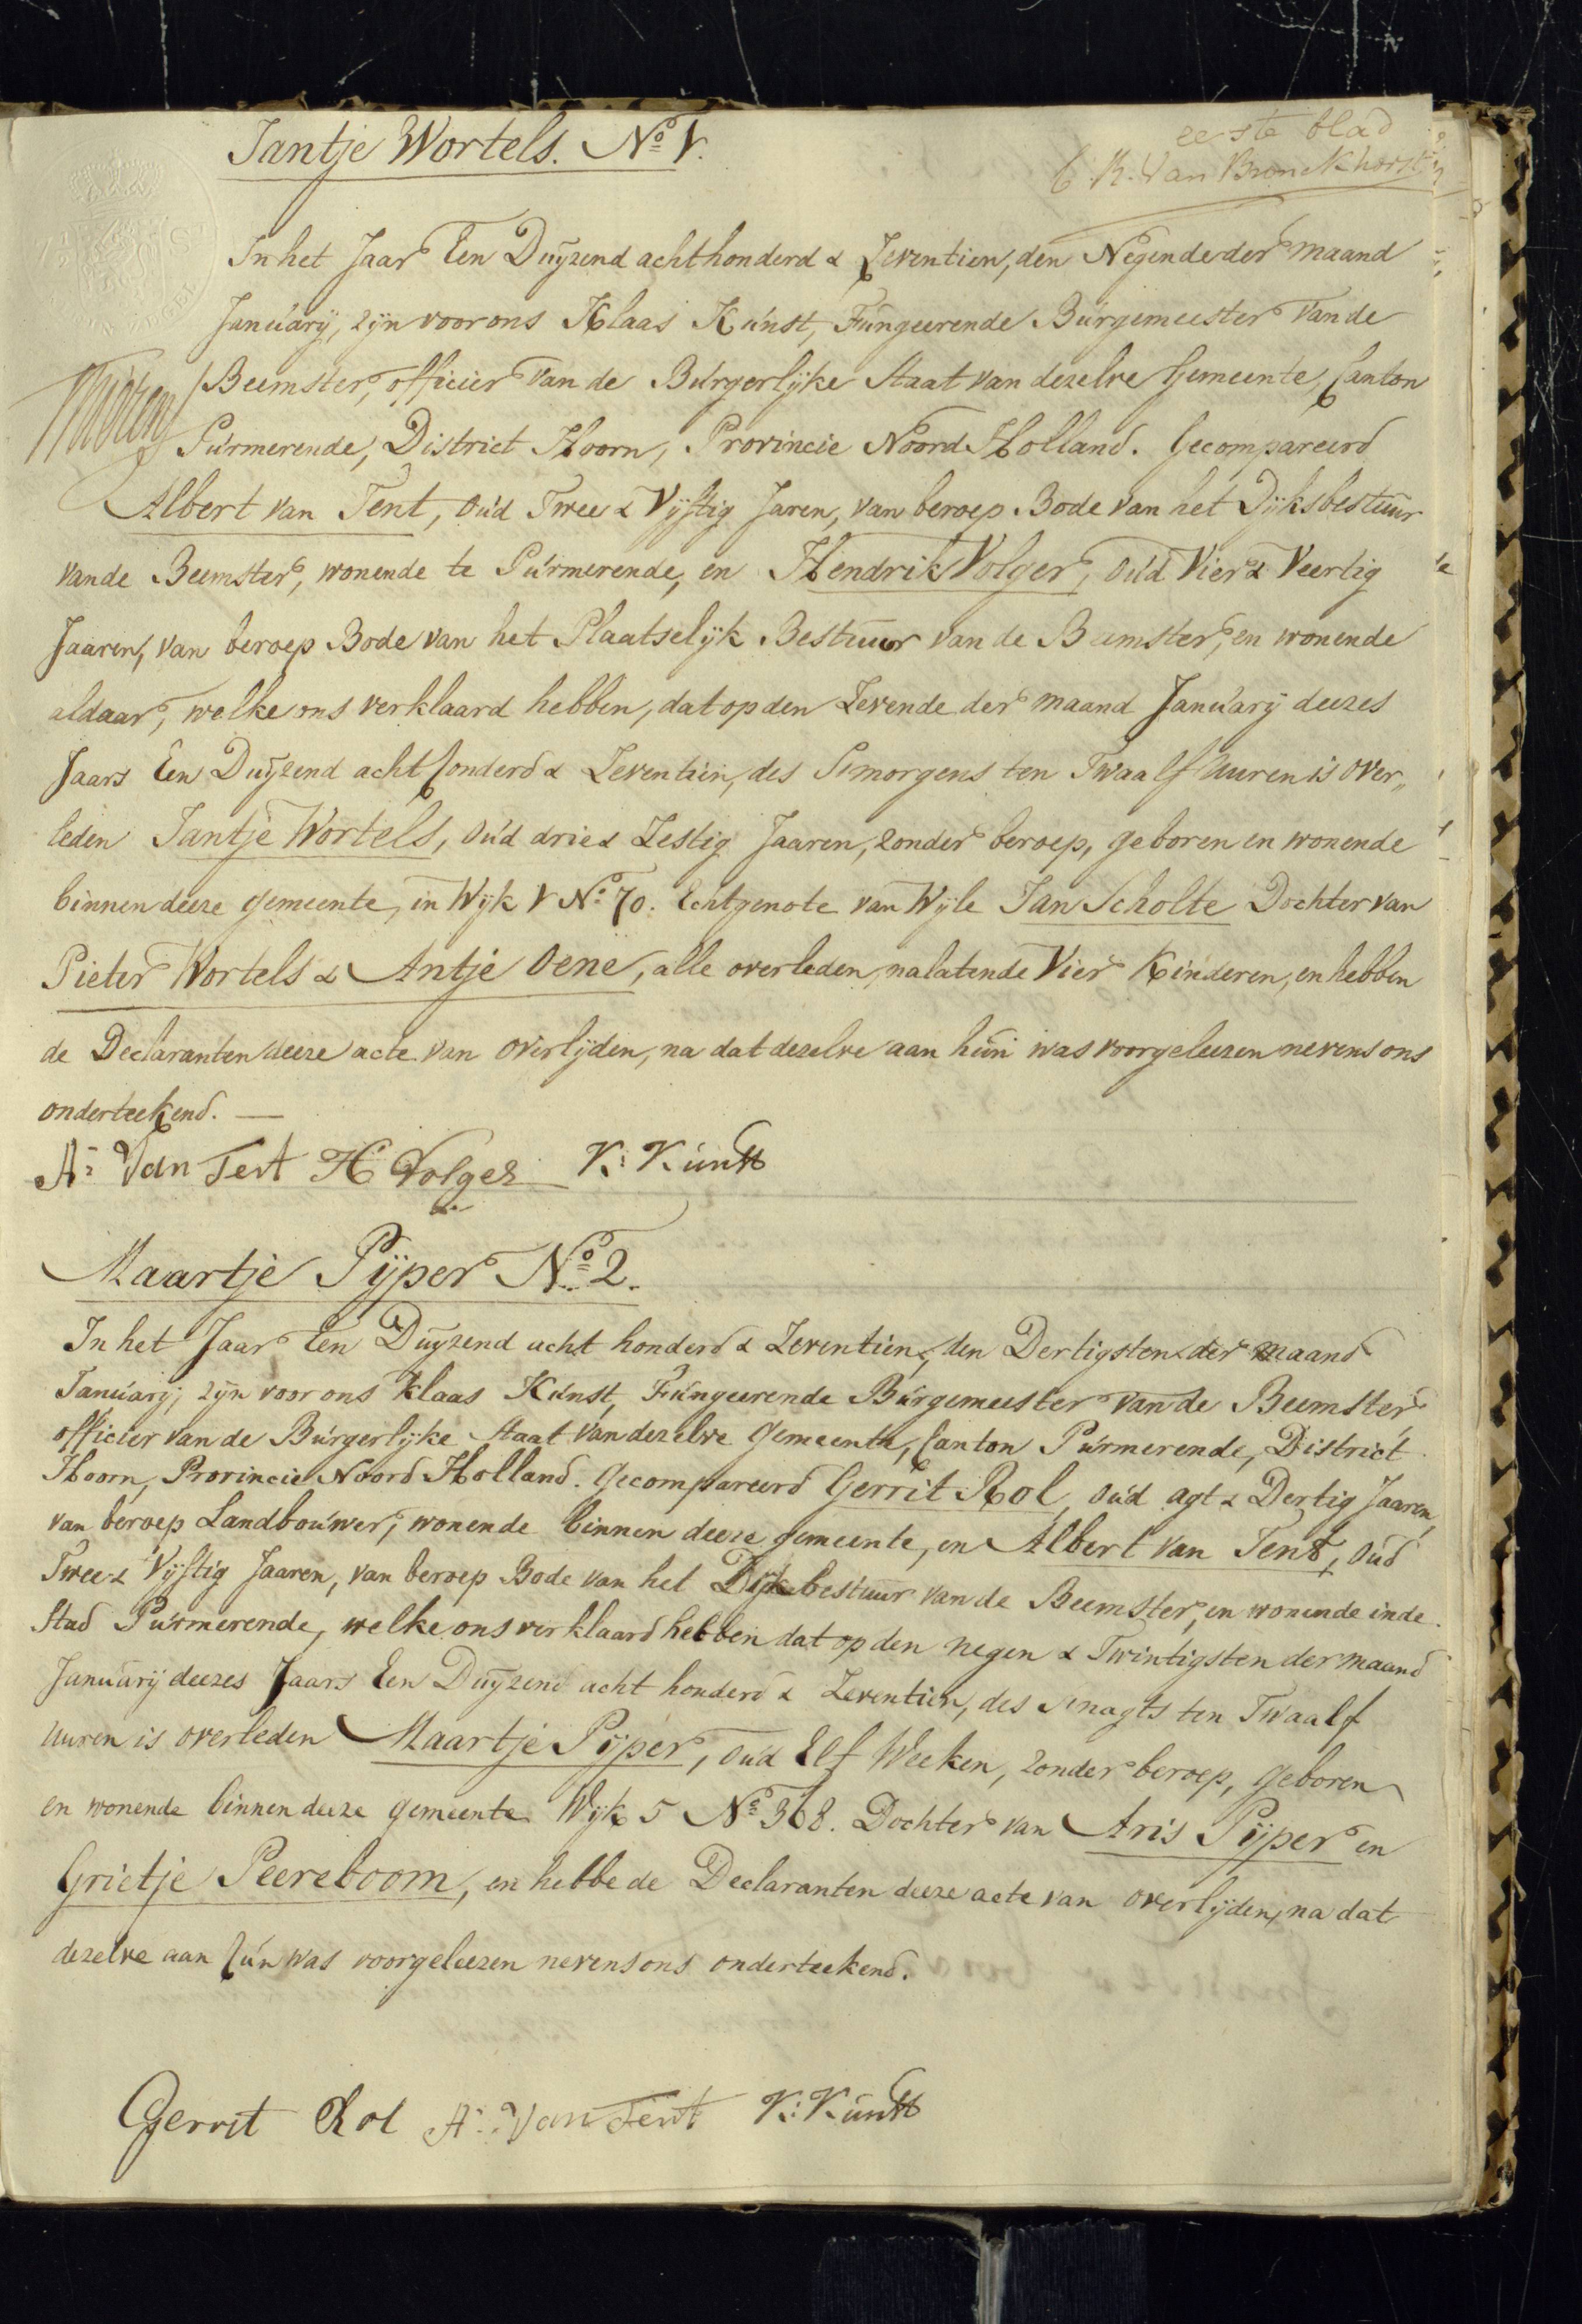 eerste blad
C. R. Van Bronckhorst
Jantje Wortels. No. 1.
In het Jaar Een Duÿzend achthonderd & Zeventien, den Negende der maand
Januarÿ, zijn voor ons Klaas Kunst, Fungeerende Burgemeester van de
Beemster, officier van de Burgerlijke Staat van dezelve Gemeente, Canton
Purmerende, District Hoorn, Provincie Noord Holland. Gecompareerd
Albert van Tent, oud Twee & Vijftig Jaren, van beroep Bode van het Dijksbestuur
vande Beemster, wonende te Purmerende, en Hendrik Volger, oud Vier & Veertig
Jaaren, van beroep Bode van het Plaatselijk Bestuur van de Beemster, en wonende
aldaar, welke ons verklaard hebben, dat op den Zevende der maand Januarÿ deezes
Jaars Een Duÿzend acht honderd & Zeventien, des Smorgens ten Twaalf Uuren is over„
leden Jantje Wortels, oud drie & Zestig Jaaren, zonder beroep, geboren en wonende
binnen deeze gemeente, in Wijk 1 No. 70. Echtgenote van Wijle Jan Scholte Dochter van
Pieter Wortels & Antje Oene, alle overleden, nalatende Vier Kinderen, en hebben
de Declaranten deeze acte van overlijden, na dat dezelve aan hun was voorgeleezen nevens ons
onderteekend. —
A: Van Tent H Volger K: Kunst
Maartje Pÿper No. 2.
In het Jaar Een Duÿzend acht honderd & Zeventien, den Dertigsten der maand
Januarÿ, zijn voor ons Klaas Kunst, Fungeerende Burgemeester van de Beemster,
officier van de Burgerlijke Staat van dezelve Gemeente, Canton Purmerende, District
Hoorn, Provincie Noord Holland. Gecompareerd Gerrit Rol, oud agt & Dertig Jaaren,
van beroep Landbouwer, wonende binnen deeze gemeente, en Albert van Tent, oud
Twee & Vijftig Jaaren, van beroep Bode van het Dijkbestuur van de Beemster, en wonende inde
Stad Purmerende, welke ons verklaard hebben dat op den negen & Twintigsten der maand
Januarÿ deezes Jaars Een Duÿzend acht honderd & Zeventien, des Snagts ten Twaalf
Uuren is overleden Maartje Pÿper, oud Elf Weeken, zonder beroep, geboren
en wonende binnen deeze gemeente Wijk 5 No. 368. Dochter van Aris Pÿper en
Grietje Peereboom, en hebbe de Declaranten deeze acte van overlijden, na dat
dezelve aan hun was voorgeleezen nevens ons onderteekend.
Gerrit Rol A: Van Tent K: Kunst